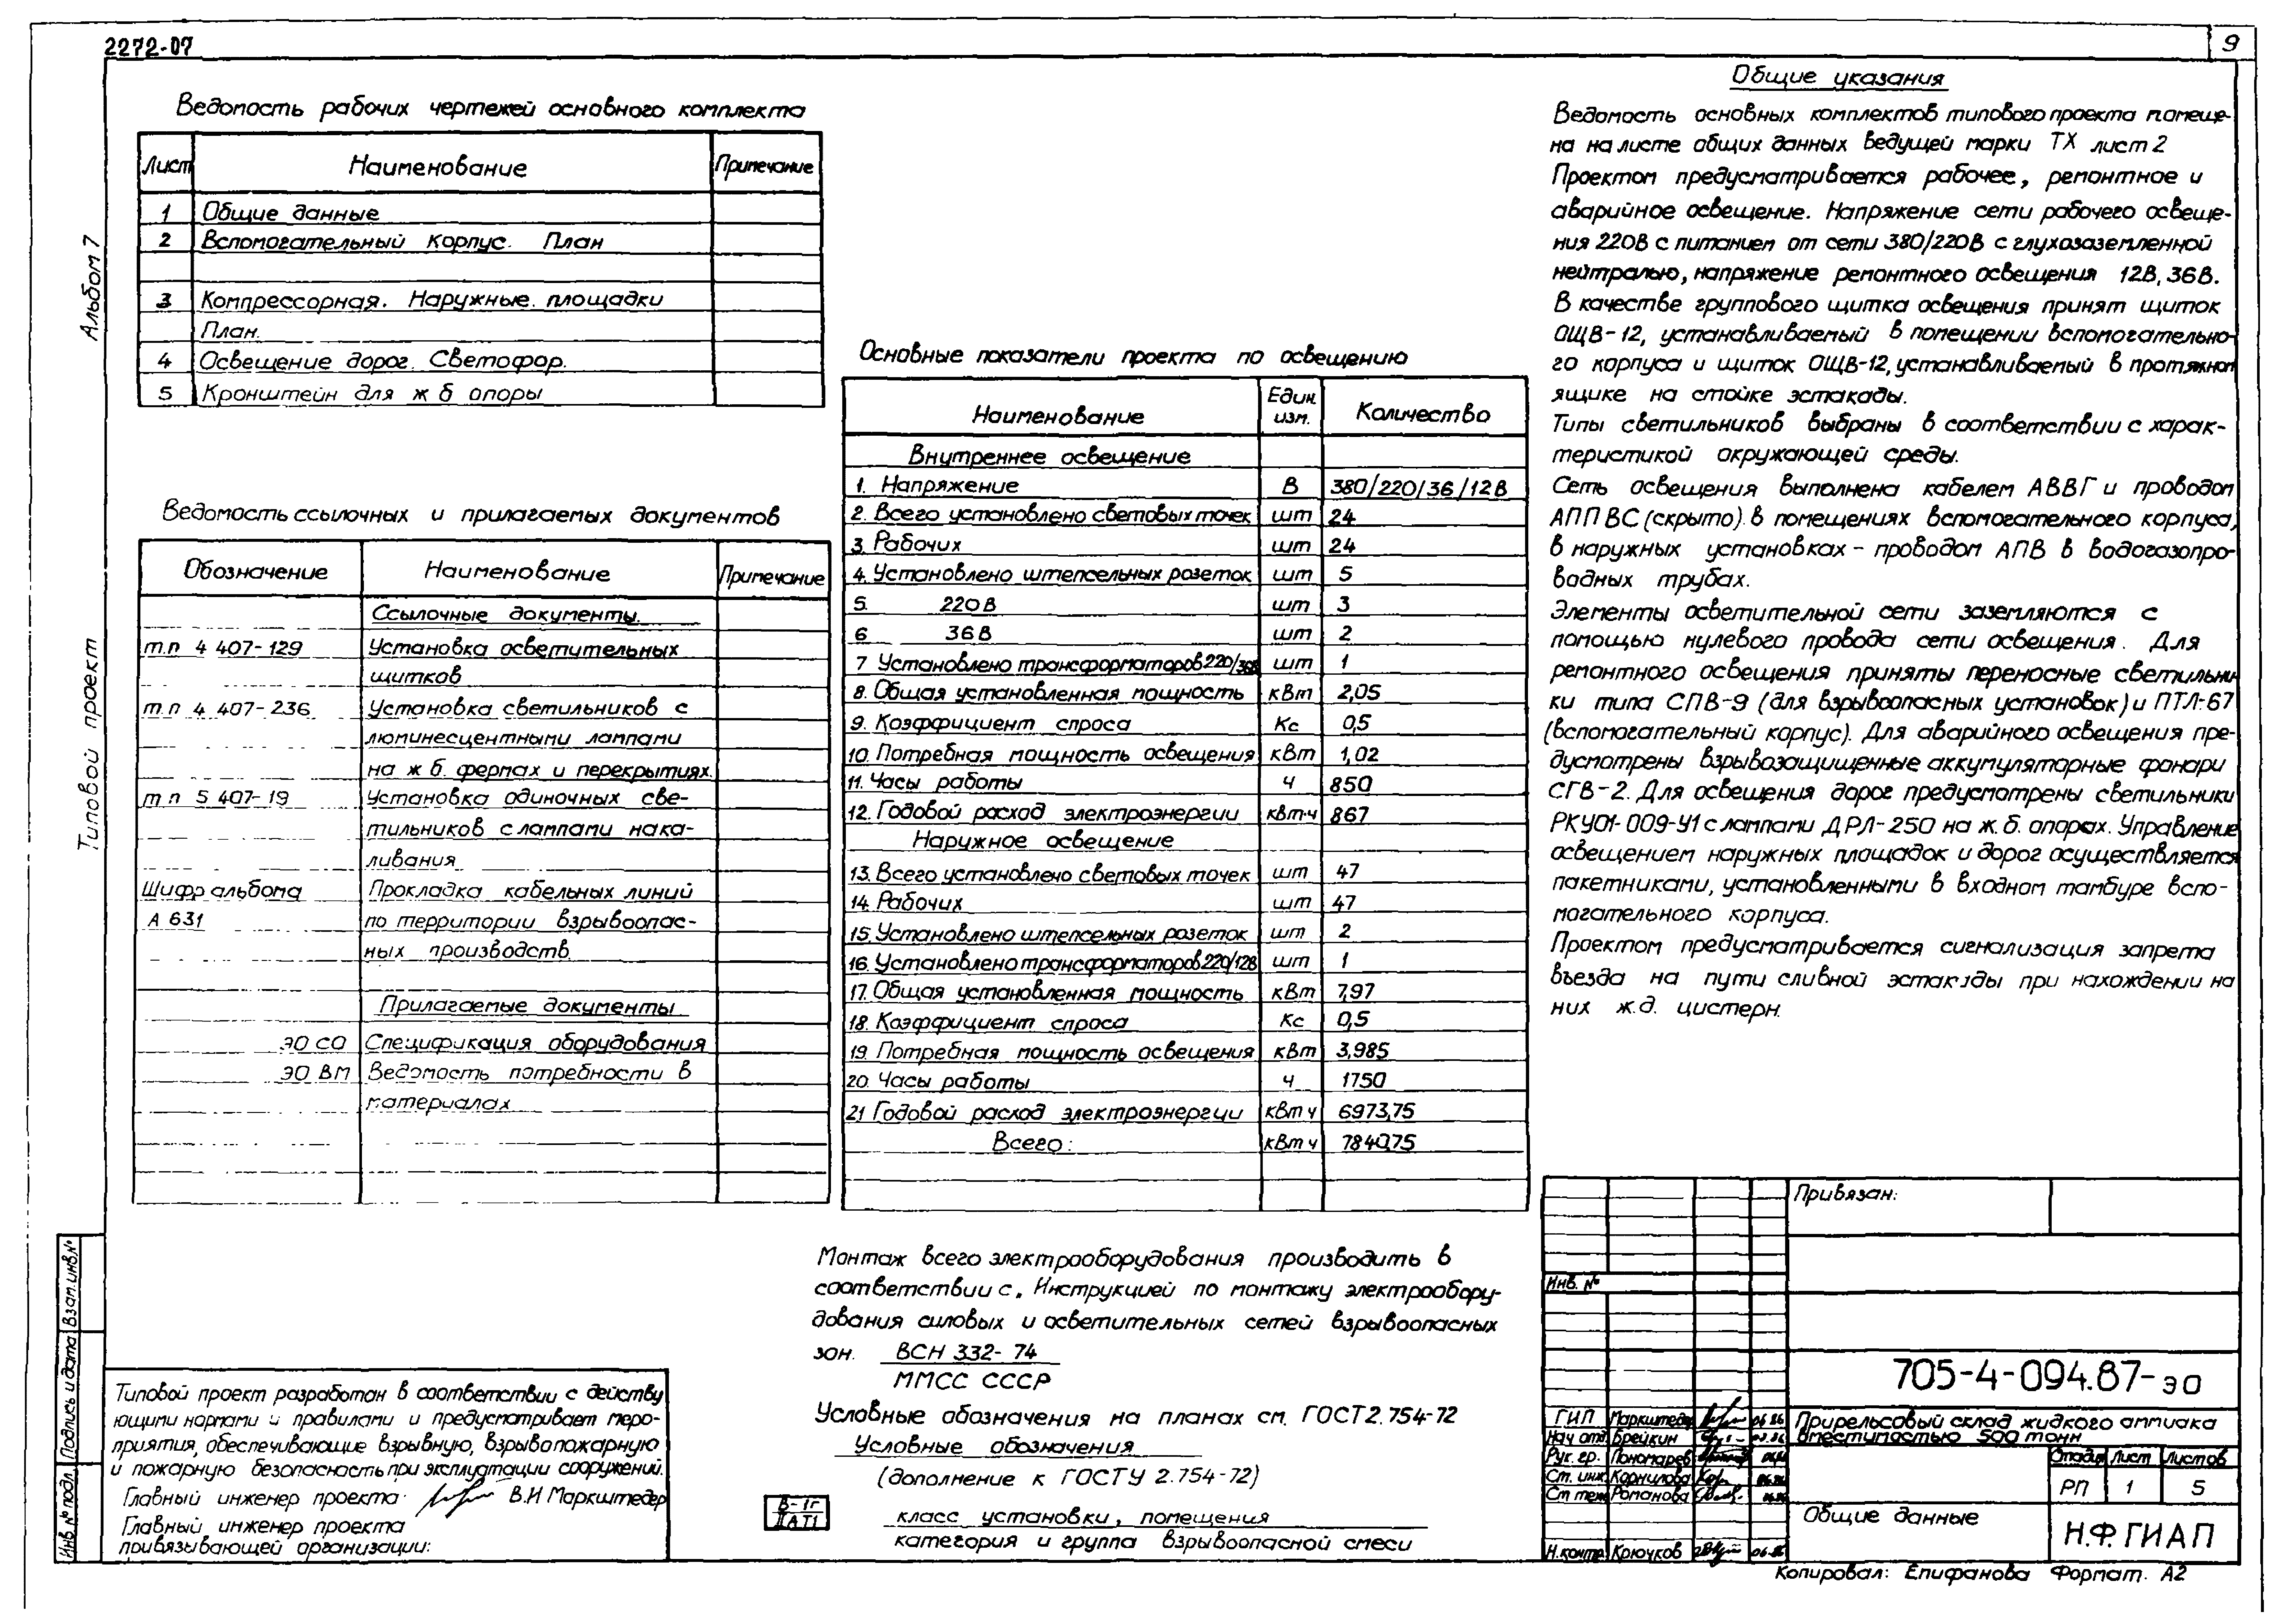 2272-07
9
Альбом 7
Типовой проект
Ведомость рабочих чертежей основного комплекта
Лист Наименование Примечание
1 Общие данные
2 Вспомогательный корпус. План
3 Компрессорная. Наружные площадки
План.
4 Освещение дорог. Светофор.
5 Кронштейн для ж б опоры
Ведомость ссылочных и прилагаемых документов
Обозначение Наименование Примечание
Ссылочные документы.
т.п 4 407-129 Установка осветительных
щитков
т.п 4 407-236 Установка светильников с
люминесцентными лампами
на ж б. фермах и перекрытиях.
т п 5 407-19 Установка одиночных све-
тильников с лампами нака-
ливания
Шифр альбома Прокладка кабельных линий
А 631 по территории взрывоопас-
ных производств.
Прилагаемые документы
ЭО СО Спецификация оборудования
ЭО ВМ Ведомость потребности в
материалах
Основные показатели проекта по освещению
Наименование Един. изм. Количество
Внутреннее освещение
1. Напряжение В 380/220/36/12 В
2. Всего установлено световых точек шт 24
3. Рабочих шт 24
4. Установлено штепсельных розеток шт 5
5. 220 В шт 3
6 36 В шт 2
7 Установлено трансформаторов 220/36В шт 1
8. Общая установленная мощность кВт 2,05
9. Коэффициент спроса Кс 0,5
10. Потребная мощность освещения кВт 1,02
11. Часы работы ч 850
12. Годовой расход электроэнергии кВт·ч 867
Наружное освещение
13. Всего установлено световых точек шт 47
14. Рабочих шт 47
15. Установлено штепсельных розеток шт 2
16. Установлено трансформаторов 220/12В шт 1
17. Общая установленная мощность кВт 7,97
18. Коэффициент спроса Кс 0,5
19. Потребная мощность освещения кВт 3,985
20. Часы работы ч 1750
21 Годовой расход электроэнергии кВт ч 6973,75
Всего: кВт ч 7840,75
Общие указания
Ведомость основных комплектов типового проекта помеще-
на на листе общих данных ведущей марки ТХ лист 2
Проектом предусматривается рабочее, ремонтное и
аварийное освещение. Напряжение сети рабочего освеще-
ния 220В с питанием от сети 380/220В с глухозаземленной
нейтралью, напряжение ремонтного освещения 12В, 36В.
В качестве группового щитка освещения принят щиток
ОЩВ-12, устанавливаемый в помещении вспомогательно-
го корпуса и щиток ОЩВ-12, устанавливаемый в протяжном
ящике на стойке эстакады.
Типы светильников выбраны в соответствии с харак-
теристикой окружающей среды.
Сеть освещения выполнена кабелем АВВГ и проводом
АППВС (скрыто) в помещениях вспомогательного корпуса,
в наружных установках - проводом АПВ в водогазопро-
водных трубах.
Элементы осветительной сети заземляются с
помощью нулевого провода сети освещения. Для
ремонтного освещения приняты переносные светильни
ки типа СПВ-9 (для взрывоопасных установок) и ПТЛ-67
(вспомогательный корпус). Для аварийного освещения пре-
дусмотрены взрывозащищенные аккумуляторные фонари
СГВ-2. Для освещения дорог предусмотрены светильники
РКУ01-009-У1 с лампами ДРЛ-250 на ж.б. опорах. Управление
освещением наружных площадок и дорог осуществляется
пакетниками, установленными в входном тамбуре вспо-
могательного корпуса.
Проектом предусматривается сигнализация запрета
въезда на пути сливной эстакады при нахождении на
них ж.д. цистерн.
Монтаж всего электрооборудования производить в
соответствии с „Инструкцией по монтажу электрообору-
дования силовых и осветительных сетей взрывоопасных
зон. ВСН 332-74
ММСС СССР
Условные обозначения на планах см. ГОСТ 2.754-72
Условные обозначения
(дополнение к ГОСТУ 2.754-72)
В-1г класс установки, помещения
IIАТ1 категория и группа взрывоопасной смеси
Типовой проект разработан в соответствии с действу
ющими нормами и правилами и предусматривает меро-
приятия, обеспечивающие взрывную, взрывопожарную
и пожарную безопасность при эксплуатации сооружений.
Главный инженер проекта В.И Маркштедер
Главный инженер проекта
привязывающей организации:
Взам. инв.№
Подпись и дата
Инв № подл.
Привязан:
Инв. №
705-4-094.87-ЭО
ГИП Маркштедер 06.86
Нач отд. Брейкин
Рук. гр. Пономарев
Ст. инж. Корнилова 06.86
Ст тех Романова
Н.контр. Крючков 06.86
Прирельсовый склад жидкого аммиака
вместимостью 500 тонн
Стадия Лист Листов
РП 1 5
Общие данные
Н.Ф. ГИАП
Копировал: Епифанова Формат. А2